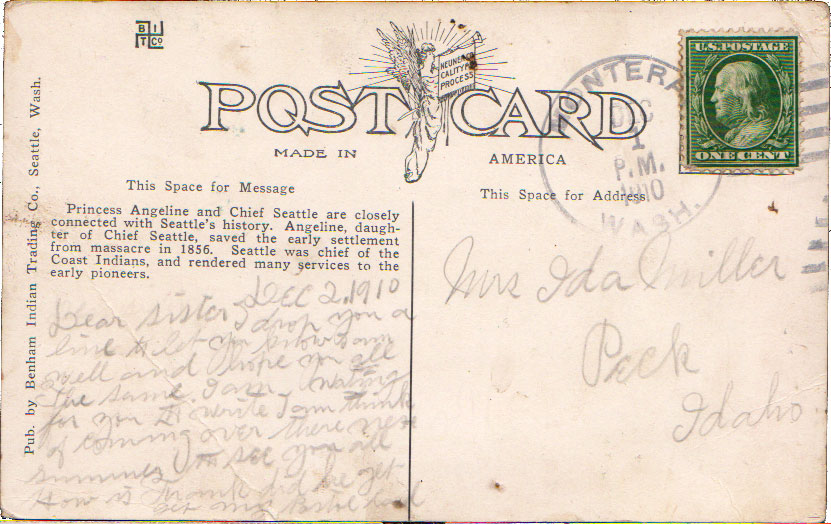 B I
T Co
NEUNER CO
CALITYPE
PROCESS
POST CARD
MADE IN AMERICA
U.S. POSTAGE
ONE CENT
DEC
1
P.M.
1910
WASH.
This Space for Message
This Space for Address
Princess Angeline and Chief Seattle are closely
connected with Seattle's history. Angeline, daugh-
ter of Chief Seattle, saved the early settlement
from massacre in 1856. Seattle was chief of the
Coast Indians, and rendered many services to the
early pioneers.
Pub. by Benham Indian Trading Co., Seattle, Wash.
Dec 2, 1910
Dear sister I drop you a
line to let you know I am
well and I hope you all
the same. I am waiting
for you to write I am think
of coming over there next
summer to see you all
How is Frank did he get
Mrs Ida Miller
Peck
Idaho